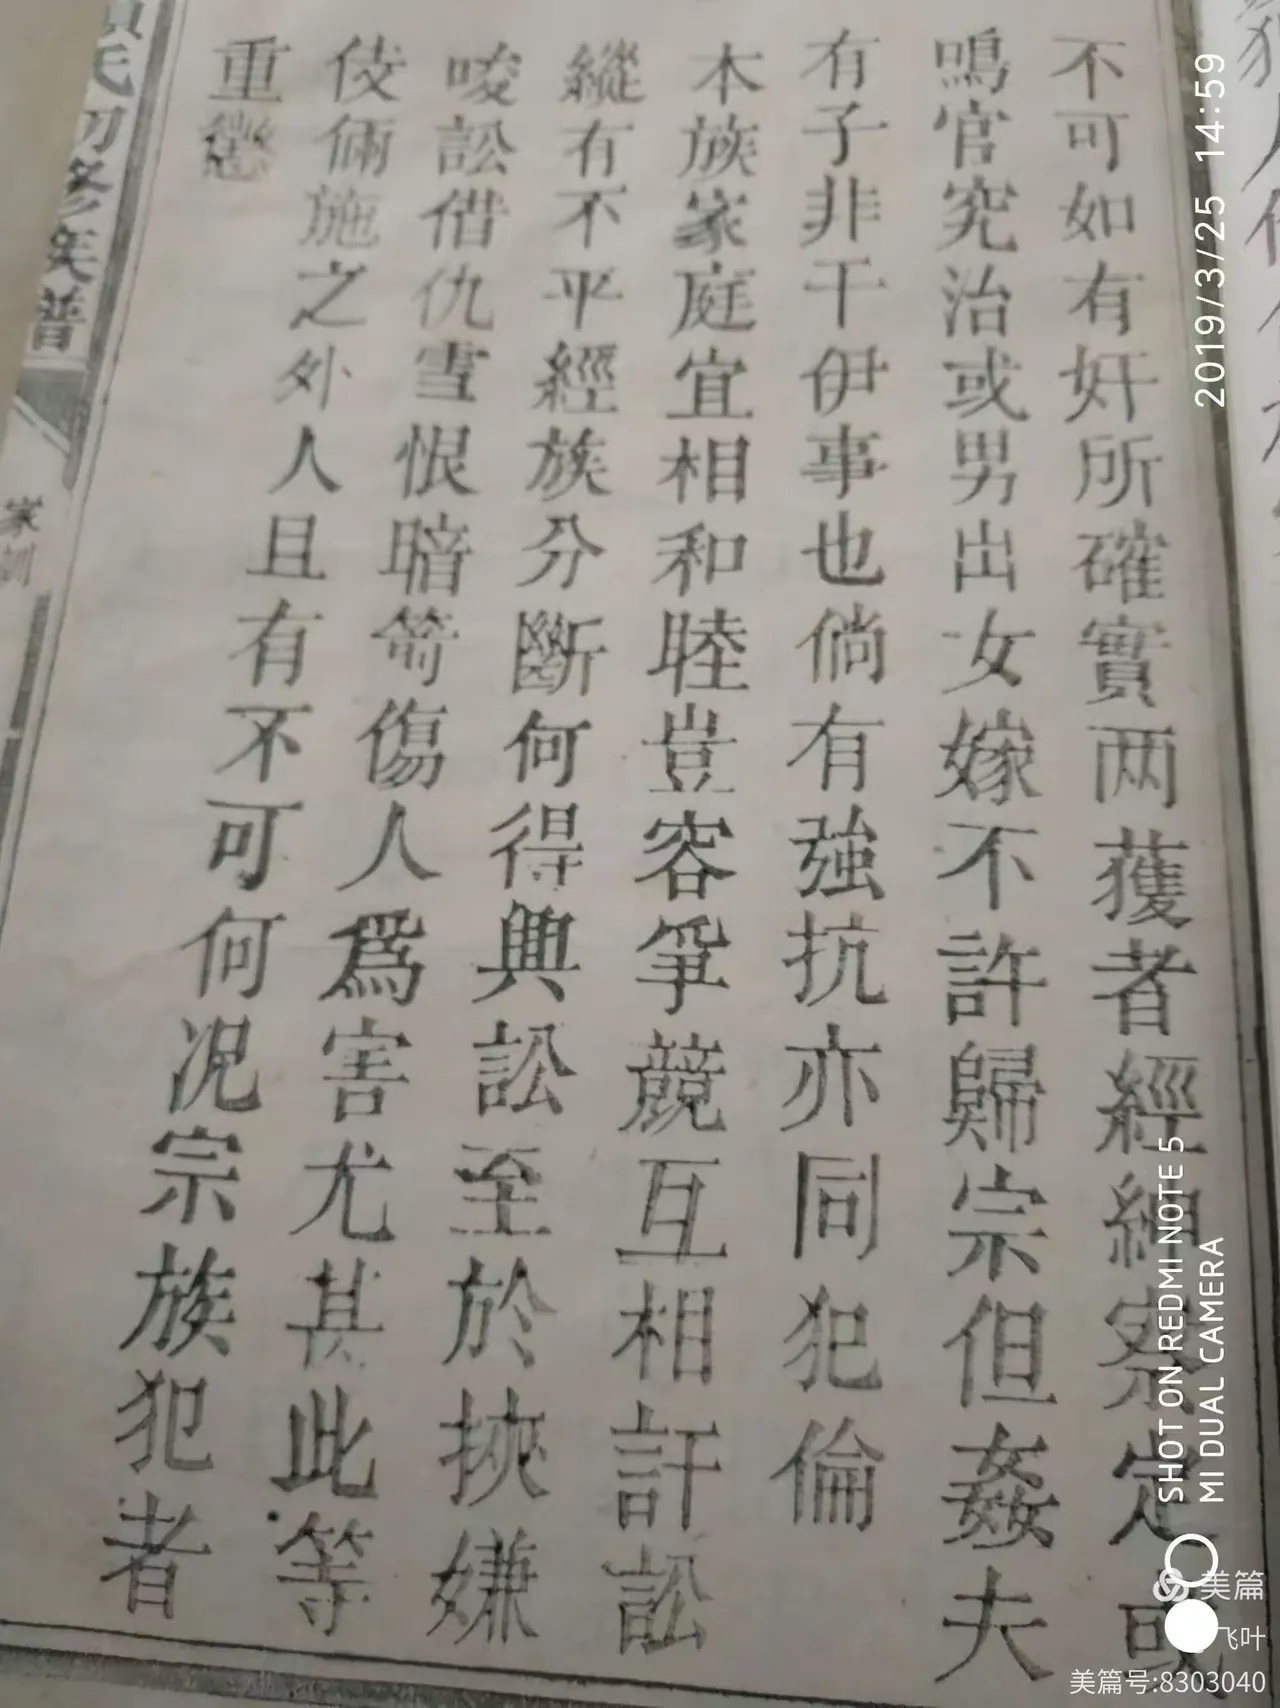 不可如有奸所確實两獲者經細察定或
鳴官究治或男出女嫁不許歸宗但姦夫
有子非干伊事也倘有強抗亦同犯倫
本族家庭宜相和睦豈容爭競互相訐訟
縱有不平經族分斷何得興訟至於挾嫌
唆訟借仇雪恨暗箭傷人為害尤其此等
伎倆施之外人且有不可何况宗族犯者
重懲
氏初修族譜
家訓
2019/3/25 14:59
SHOT ON REDMI NOTE 5
MI DUAL CAMERA
美篇
飞叶
美篇号:8303040